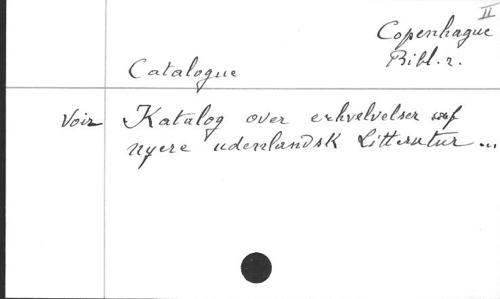 II
Copenhague
Bibl. r.
Catalogue
Voir Katalog over erhvelvelser af
nyere udenlandsk Litteratur ...